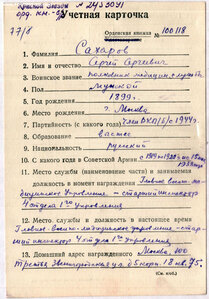 Красной Звезды № 2453091
орд. кн.
Учетная карточка
77/8
Орденская книжка № 100118
1. Фамилия Сахаров
2. Имя и отчество Сергей Сергеевич
3. Воинское звание полковник медицин. службы
4. Пол мужской
5. Год рождения 1899 г.
6. Место рождения г. Москва
7. Партийность (с какого года) член ВКП(б) с 1944 г.
8. Образование высшее
9. Национальность русский
10. С какого года в Советской Армии
11. Место службы (наименование части) и занимаемая
должность в момент награждения Главное Воено-ме-
дицинское Управление - старший инспектор
4 отдела 1го управления
12. Место службы и должность в настоящее время
Главное Воено-медицинское управление - стар-
ший инспектор 4 отдела 1го Управления
13. Домашний адрес награжденного Москва, 100
кв. 75.
(См. на об.)